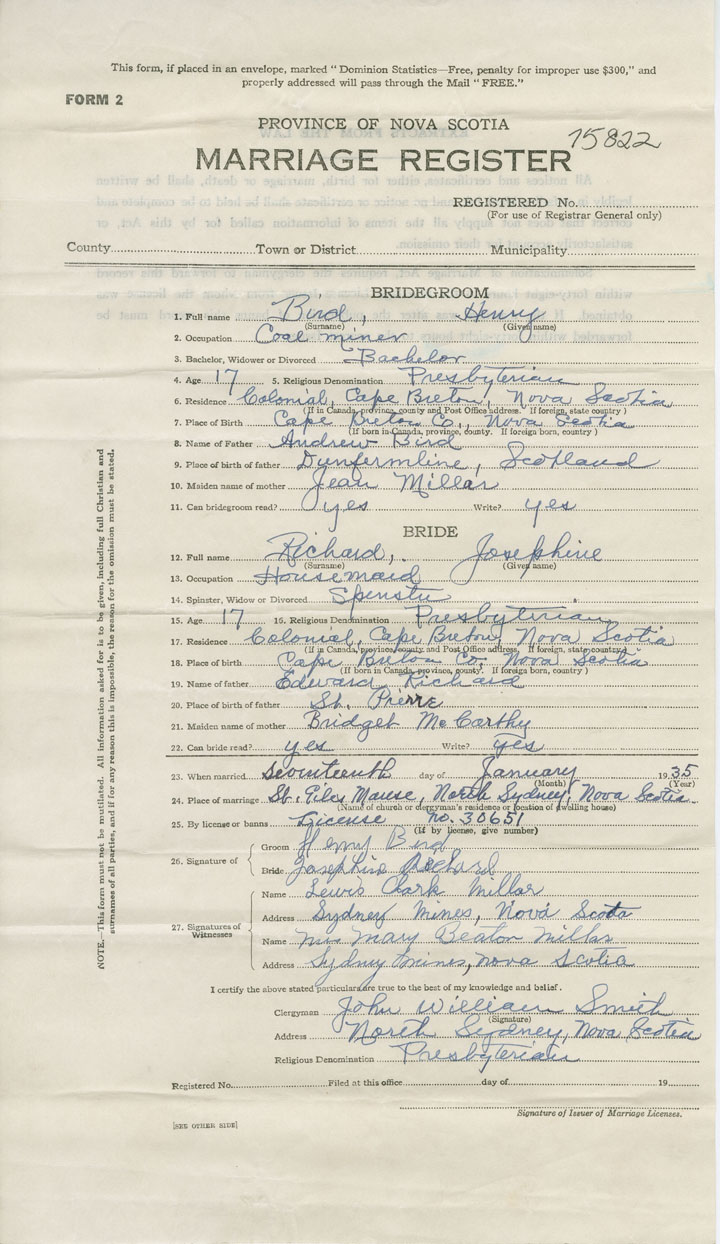 This form, if placed in an envelope, marked "Dominion Statistics—Free, penalty for improper use $300," and
properly addressed will pass through the Mail "FREE."
FORM 2
PROVINCE OF NOVA SCOTIA
75822
MARRIAGE REGISTER
REGISTERED No.
(For use of Registrar General only)
County Town or District Municipality
BRIDEGROOM
1. Full name Bird, Henry
(Surname) (Given name)
2. Occupation Coal miner
3. Bachelor, Widower or Divorced Bachelor
4. Age 17 5. Religious Denomination Presbyterian
6. Residence Colonial, Cape Breton, Nova Scotia
(If in Canada, province, county and Post Office address. If foreign, state country)
7. Place of Birth Cape Breton Co., Nova Scotia
(If born in Canada, province, county. If foreign born, country)
8. Name of Father Andrew Bird
9. Place of birth of father Dunfermline, Scotland
10. Maiden name of mother Jean Millar
11. Can bridegroom read? yes Write? yes
BRIDE
12. Full name Richard, Josephine
(Surname) (Given name)
13. Occupation Housemaid
14. Spinster, Widow or Divorced Spinster
15. Age 17 16. Religious Denomination Presbyterian
17. Residence Colonial, Cape Breton, Nova Scotia
(If in Canada, province, county and Post Office address. If foreign, state country)
18. Place of birth Cape Breton Co. Nova Scotia
(If born in Canada, province, county. If foreign born, country)
19. Name of father Edward Richard
20. Place of birth of father St. Pierre
21. Maiden name of mother Bridget McCarthy
22. Can bride read? yes Write? yes
23. When married seventeenth day of January 1935
(Month) (Year)
24. Place of marriage St. Giles Manse, North Sydney, Nova Scotia
(Name of church or clergyman's residence or location of dwelling house)
25. By license or banns License no. 30651
(If by license, give number)
26. Signature of
Groom Henry Bird
Bride Josephine Richard
27. Signatures of Witnesses
Name Lewis Clark Millar
Address Sydney Mines, Nova Scota
Name Mrs Mary Beaton Millar
Address Sydney Mines, Nova Scotia
I certify the above stated particulars are true to the best of my knowledge and belief.
Clergyman John William Smith
(Signature)
Address North Sydney, Nova Scotia
Religious Denomination Presbyterian
Registered No. Filed at this office day of 19
Signature of Issuer of Marriage Licenses.
[SEE OTHER SIDE]
NOTE.—This form must not be mutilated. All information asked for is to be given, including full Christian and
surnames of all parties, and if for any reason this is impossible, the reason for the omission must be stated.